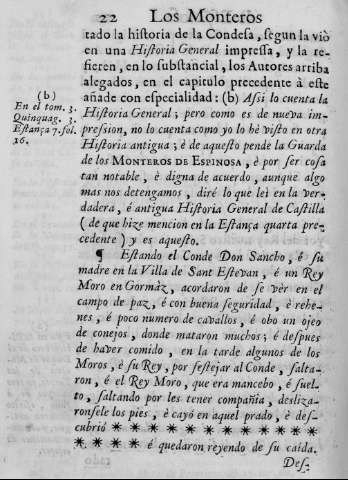 22 Los Monteros
tado la historia de la Condesa, segun la viò
en una Historia General impressa, y la re-
fieren, en lo substancial, los Autores arriba
alegados, en el capitulo precedente à este
añade con especialidad: (b) Assi lo cuenta la
Historia General; pero como es de nueva im-
pression, no lo cuenta como yo lo hè visto en otra
Historia antigua; è de aquesto pende la Guarda
de los MONTEROS DE ESPINOSA, è por ser cosa
tan notable, è digna de acuerdo, aunque algo
mas nos detengamos, diré lo que lei en la ver-
dadera, é antigua Historia General de Castilla
(de que hize mencion en la Estança quarta pre-
cedente) y es aquesto.
¶ Estando el Conde Don Sancho, é su
madre en la Villa de Sant Estevan, é un Rey
Moro en Gormàz, acordaron de se vèr en el
campo de paz, è con buena seguridad, è rehe-
nes, è poco numero de cavallos, é obo un ojeo
de conejos, donde mataron muchos; é despues
de haver comido, en la tarde algunos de los
Moros, è su Rey, por festejar al Conde, salta-
ron, é el Rey Moro, que era mancebo, é suel-
to, saltando por les tener compañia, desliza-
ronsele los pies, è cayó en aquel prado, è des-
cubrió * * * * * * * * * * * *
* * * * é quedaron reyendo de su caida.
Des-
(b)
En el tom. 3.
Quinquag. 3.
Estança 7. fol.
26.